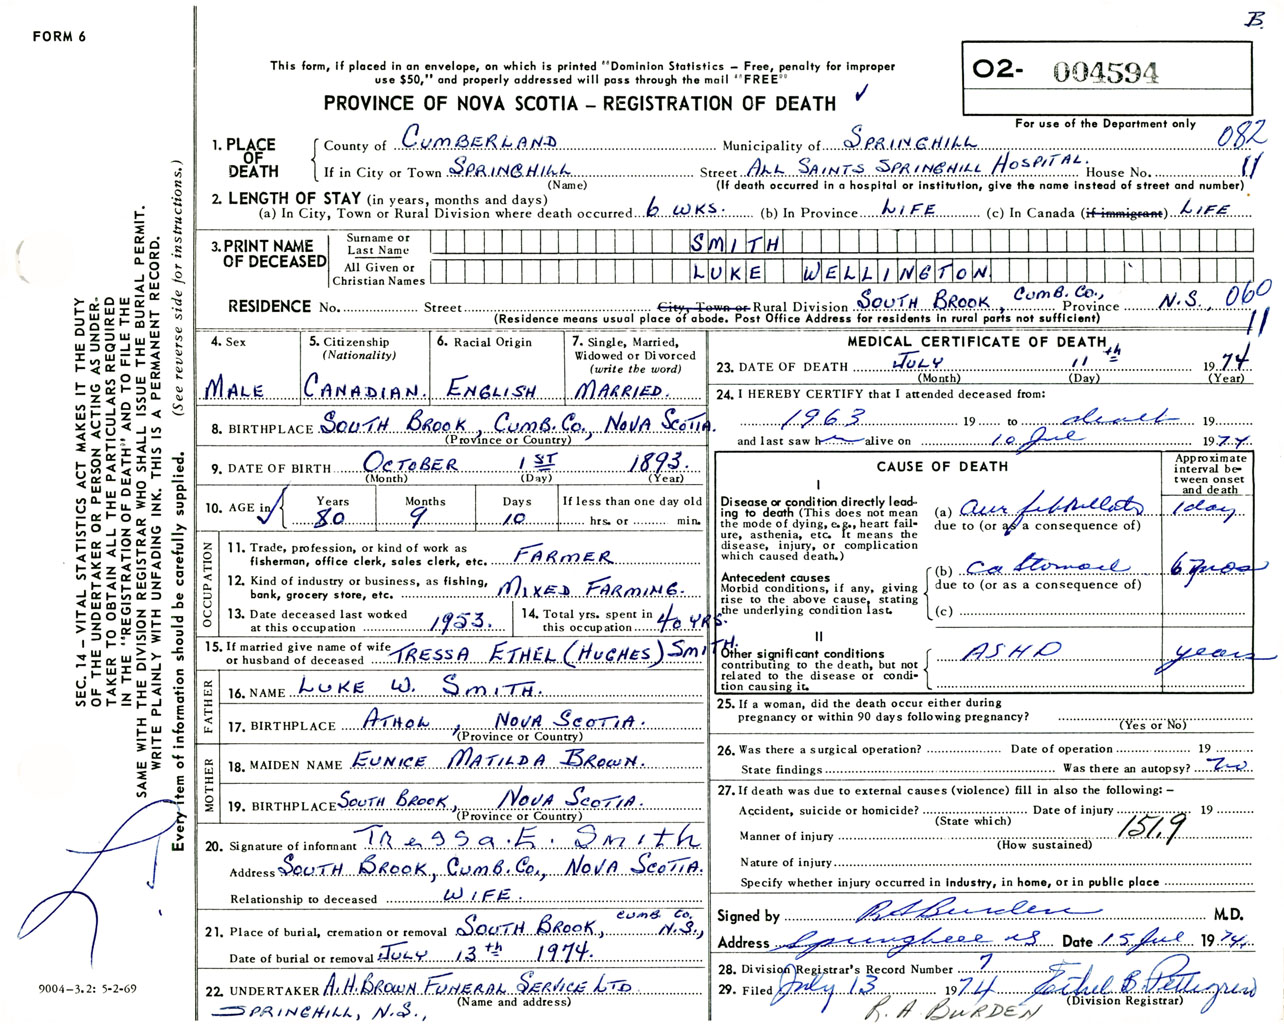 B.
FORM 6
This form, if placed in an envelope, on which is printed "Dominion Statistics – Free, penalty for improper
use $50," and properly addressed will pass through the mail "FREE"
PROVINCE OF NOVA SCOTIA – REGISTRATION OF DEATH ✓
02- 004594
For use of the Department only
082
11
1. PLACE OF DEATH
County of CUMBERLAND Municipality of SPRINGHILL
If in City or Town SPRINGHILL Street ALL SAINTS SPRINGHILL HOSPITAL. House No.
(Name) (If death occurred in a hospital or institution, give the name instead of street and number)
2. LENGTH OF STAY (in years, months and days)
(a) In City, Town or Rural Division where death occurred 6 WKS. (b) In Province LIFE (c) In Canada (if immigrant) LIFE
3. PRINT NAME OF DECEASED
Surname or Last Name SMITH
All Given or Christian Names LUKE WELLINGTON
RESIDENCE No. Street City, Town or Rural Division SOUTH BROOK, CUMB. CO., Province N.S., 060
(Residence means usual place of abode. Post Office Address for residents in rural parts not sufficient)
11
4. Sex
MALE
5. Citizenship
(Nationality)
CANADIAN.
6. Racial Origin
ENGLISH
7. Single, Married,
Widowed or Divorced
(write the word)
MARRIED.
8. BIRTHPLACE SOUTH BROOK, CUMB. CO., NOVA SCOTIA.
(Province or Country)
9. DATE OF BIRTH OCTOBER 1ST 1893.
(Month) (Day) (Year)
10. AGE in ✓
Years Months Days If less than one day old
80 9 10 hrs. or min.
OCCUPATION
11. Trade, profession, or kind of work as
fisherman, office clerk, sales clerk, etc. FARMER
12. Kind of industry or business, as fishing,
bank, grocery store, etc. MIXED FARMING.
13. Date deceased last worked
at this occupation 1953.
14. Total yrs. spent in
this occupation 40 YRS.
15. If married give name of wife
or husband of deceased TRESSA ETHEL (HUGHES) SMITH.
FATHER
16. NAME LUKE W. SMITH.
17. BIRTHPLACE ATHOL, NOVA SCOTIA.
(Province or Country)
MOTHER
18. MAIDEN NAME EUNICE MATILDA BROWN.
19. BIRTHPLACE SOUTH BROOK, NOVA SCOTIA.
(Province or Country)
20. Signature of informant Tressa. E. Smith
Address SOUTH BROOK, CUMB. CO., NOVA SCOTIA.
Relationship to deceased WIFE.
21. Place of burial, cremation or removal SOUTH BROOK, CUMB. CO. N.S.,
Date of burial or removal JULY 13th 1974.
22. UNDERTAKER A.H. BROWN FUNERAL SERVICE LTD
(Name and address)
SPRINGHILL, N.S.,
MEDICAL CERTIFICATE OF DEATH
23. DATE OF DEATH JULY 11th 1974
(Month) (Day) (Year)
24. I HEREBY CERTIFY that I attended deceased from:
1963 19 to death 19
and last saw him alive on 10 Jul 1974
CAUSE OF DEATH
Approximate
interval be-
tween onset
and death
I
Disease or condition directly lead-
ing to death (This does not mean
the mode of dying, e.g., heart fail-
ure, asthenia, etc. It means the
disease, injury, or complication
which caused death.)
(a) Aur fibrillatn 1 day
due to (or as a consequence of)
Antecedent causes
Morbid conditions, if any, giving
rise to the above cause, stating
the underlying condition last.
(b) Ca Stomach mos
due to (or as a consequence of)
(c)
II
Other significant conditions
contributing to the death, but not
related to the disease or condi-
tion causing it.
ASHD years
25. If a woman, did the death occur either during
pregnancy or within 90 days following pregnancy?
(Yes or No)
26. Was there a surgical operation? Date of operation 19
State findings Was there an autopsy? No
27. If death was due to external causes (violence) fill in also the following: –
Accident, suicide or homicide? Date of injury 19
(State which) 151.9
Manner of injury
(How sustained)
Nature of injury
Specify whether injury occurred in industry, in home, or in public place
Signed by R A Burden M.D.
Address Springhill NS Date 15 Jul 1974
28. Division Registrar's Record Number 7
29. Filed July 13 1974 Ethel B Pettigrew
(Division Registrar)
R. A. BURDEN
SEC. 14 – VITAL STATISTICS ACT MAKES IT THE DUTY
OF THE UNDERTAKER OR PERSON ACTING AS UNDER-
TAKER TO OBTAIN ALL THE PARTICULARS REQUIRED
IN THE "REGISTRATION OF DEATH" AND TO FILE THE
SAME WITH THE DIVISION REGISTRAR WHO SHALL ISSUE THE BURIAL PERMIT.
WRITE PLAINLY WITH UNFADING INK. THIS IS A PERMANENT RECORD.
Every item of information should be carefully supplied. (See reverse side for instructions.)
9004–3.2: 5-2-69